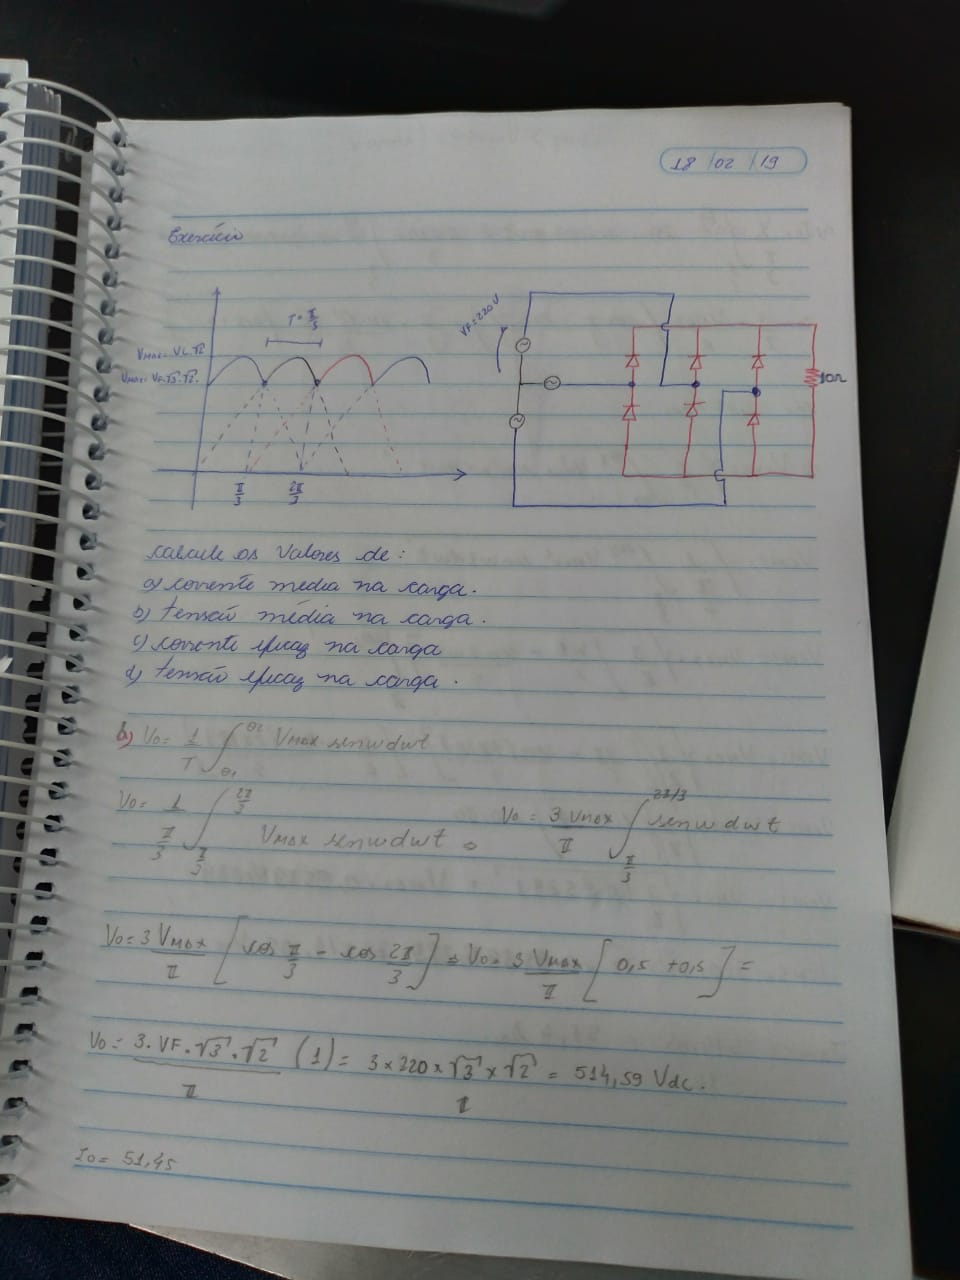 18/02/19
Exercício
T = π/3
VMAX = VL.√2
VMAX = VF.√3.√2.
π/3
2π/3
VF = 220V
10Ω
calcule os valores de:
a) corrente media na carga.
b) tensão média na carga.
c) corrente eficaz na carga
d) tensão eficaz na carga.
b) Vo = 1/T ∫θ1^θ2 VMAX senw dwt
Vo = 1/(π/3) ∫π/3^2π/3 VMAX senw dwt ⇒ Vo = 3 VMAX/π ∫π/3^2π/3 senw dwt
Vo = 3 VMAX/π [cos π/3 - cos 2π/3] ⇒ Vo = 3 VMAX/π [0,5 + 0,5] =
Vo = 3.VF.√3.√2/π (1) = 3 x 220 x √3 x √2/π = 514,59 Vdc.
Io = 51,45